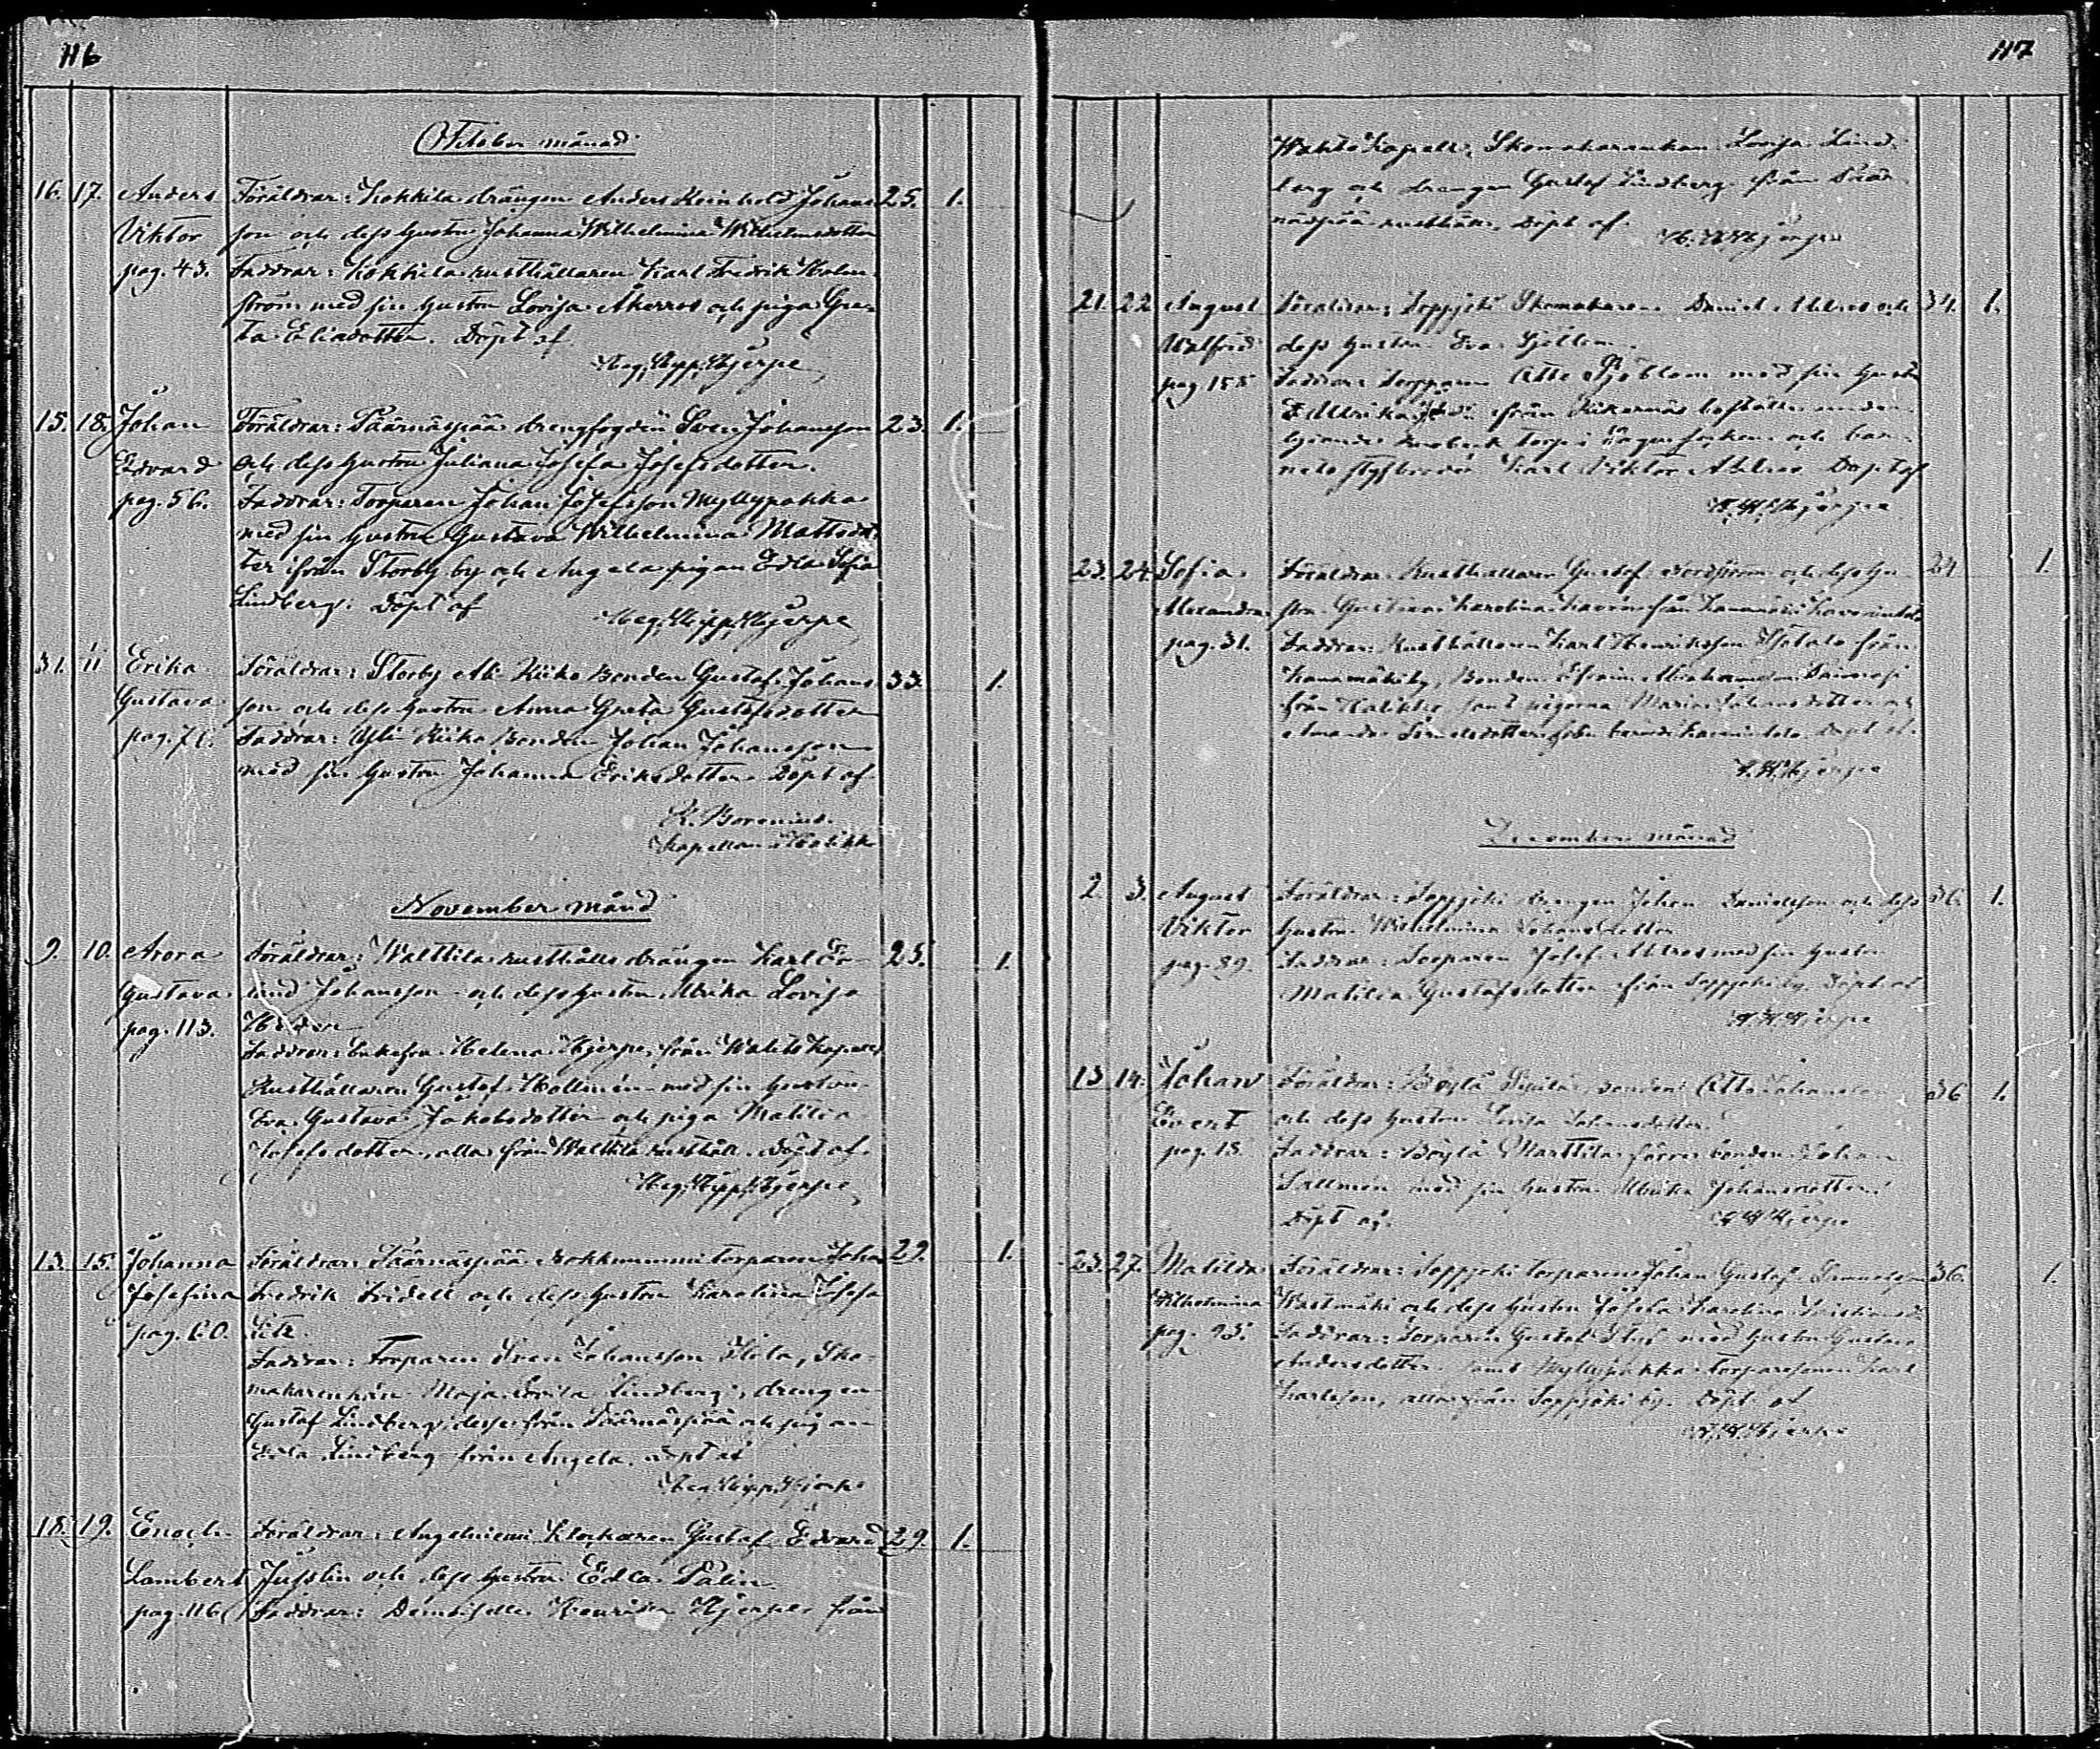 116
October månad
16. 17. Anders Föräldrar: Kokkila drängen Anders Reinhold Johans 25. 1.
Viktor son och dess hustru Johanna Wilhelmina Wilhelmsdotter
pag. 43. Faddrar: Kokkila rusthållaren Karl Fredrik Holm-
ström med sin hustru Lovisa Åkerros och piga Gre-
ta Eliadotter. Döpt af
Hjerpe
15. 18. Johan Föräldrar: Päärnäspää drengfogden Sven Johansson 23. 1.
Edvard och dess hustru Juliana Josefa Josefsdotter.
pag. 56. Faddrar: Torparen Johan Josefsson Myllypakka
med sin hustru Gustava Wilhelmina Mattsdot-
ter ifrån Storby by och Angela pigan Edla Sofia
Lindberg. Döpt af
Hjerpe
31. 11 Erika Föräldrar: Storby Ali Kiiko Bonden Gustaf Johans 33. 1.
Gustava son och dess hustru Anna Greta Gustafsdotter
pag. 71. Faddrar: Ylli Kiiko Bonden Johan Johansson
med sin hustru Johanna Eriksdotter. Döpt af
K. Borenius
Kapellan i Halikko
November månd
9. 10. Arora Föräldrar: Walttila rusthålls drängen Karl 25. 1.
Gustava lund Johansson och dess hustru Ulrika Lovisa
pag. 113.
Faddrar: Enkefru Helena Hjerpe, från
Rusthållaren Gustaf Hallmén med sin hustru
Eva Gustava Jakobsdotter och piga Matilda
Josefsdotter, alla från Walttila rusthåll. Döpt af.
Hjerpe
13. 15. Johanna Föräldrar: Päärnäspää torparen Johan 29. 1.
Josefina Fredrik Fridell och dess hustru Karolina Josefa
pag. 60.
Faddrar: Torparen Sven Johansson Ilola, Sko-
makarenkan Maja Lovisa Lindberg, drengen
Gustaf Lindberg, desse från Päärnäspää och pigan
Edla Lindberg från Angela. döpt af
18. 19. Enoch Föräldrar: Angelniemi Klockaren Gustaf Edvard 29. 1.
Lambert Jusslin och dess hustru Edla Palin
pag. 116 Faddrar: Demoiselle Hjerpe från
117
Kapell, Skomakarenkan Lovisa Lind-
berg och drengen Gustaf Lindberg från Päär-
näspää rusthåll. Döpt af.
Hjerpe
21. 22 August Föräldrar: Toppjoki Skomakaren Daniel och 34. 1.
Walfrid dess hustru Eva
pag 155 Faddrar: Torparen Otto Sjöblom med sin hustru
Ulrika från
torp i socken och bar-
nets styfbroder Karl Viktor Döpt af
Hjerpe
23. 24. Sofia Föräldrar: Rusthållaren Gustaf Nordström och dess hu- 24 1
Alexandra stru Gustava Karolina från
pag. 31. Faddrar: Rusthållaren Karl Henriksson från
Bonden Efraim
från Halikko samt pigorna Maria Johansdotter och
Döpt af.
Hjerpe
December månad
2. 3. August Föräldrar: Toppjoki drengen Johan Danielsson och dess 36. 1.
Viktor hustru Wilhelmina Johansdotter
pag. 89. Faddrar: Torparen Josef med sin hustru
Matilda Gustafsdotter från Toppjoki by. Döpt af
Hjerpe
13 14. Johan Föräldrar: Böylä bonden Otto Johansson 36 1.
Evert och dess hustru Lovisa Johansdotter.
pag. 15. Faddrar: Böylä Marttila förre bonden Johan
Sallmén med sin hustru Ulrika Johansdotter.
Döpt af. Hjerpe
23. 27. Matilda Föräldrar: Toppjoki torparen Johan Gustaf 36. 1.
Wilhelmina Westmäki och dess hustru Josefa Karolina
pag. 93. Faddrar: Torparen Gustaf med hustru Gustava
Andersdotter samt Myllypakka torparesonen Karl
Karlsson, alla från Toppjoki by. Döpt af
Hjerpe